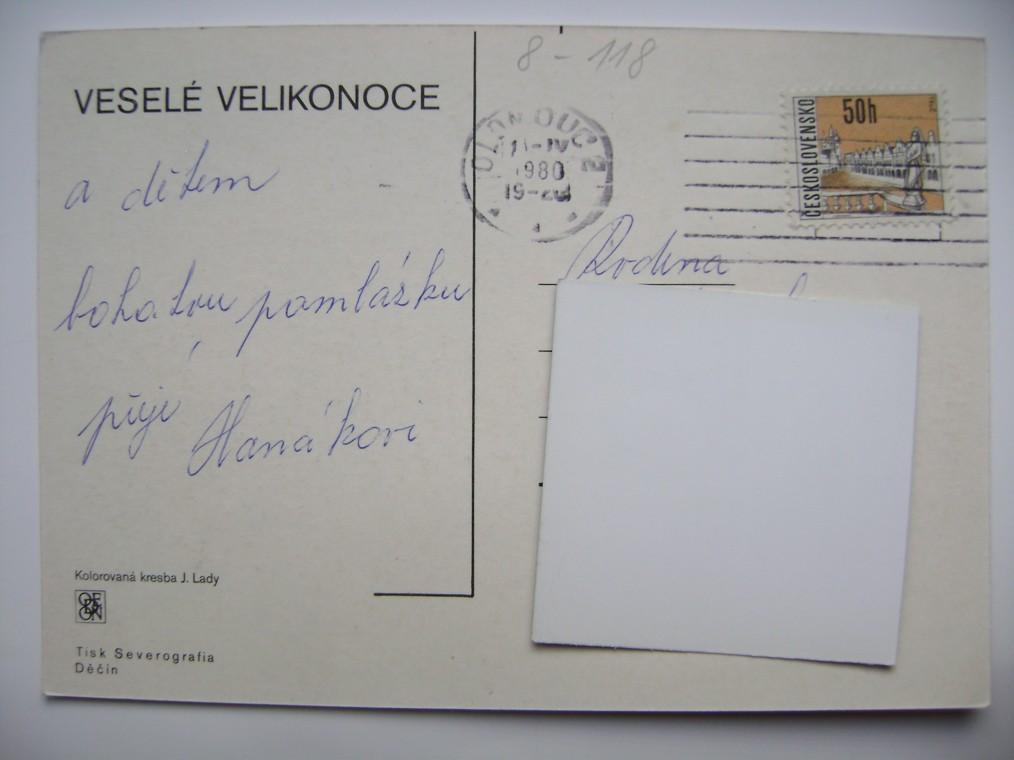 8-118
VESELÉ VELIKONOCE
a dětem
bohatou pomlázku
přejí Hanákovi
OLOMOUC 2
1980
19-20
50h
ČESKOSLOVENSKO
Rodina
Kolorovaná kresba J. Lady
ODEON
Tisk Severografia
Děčín